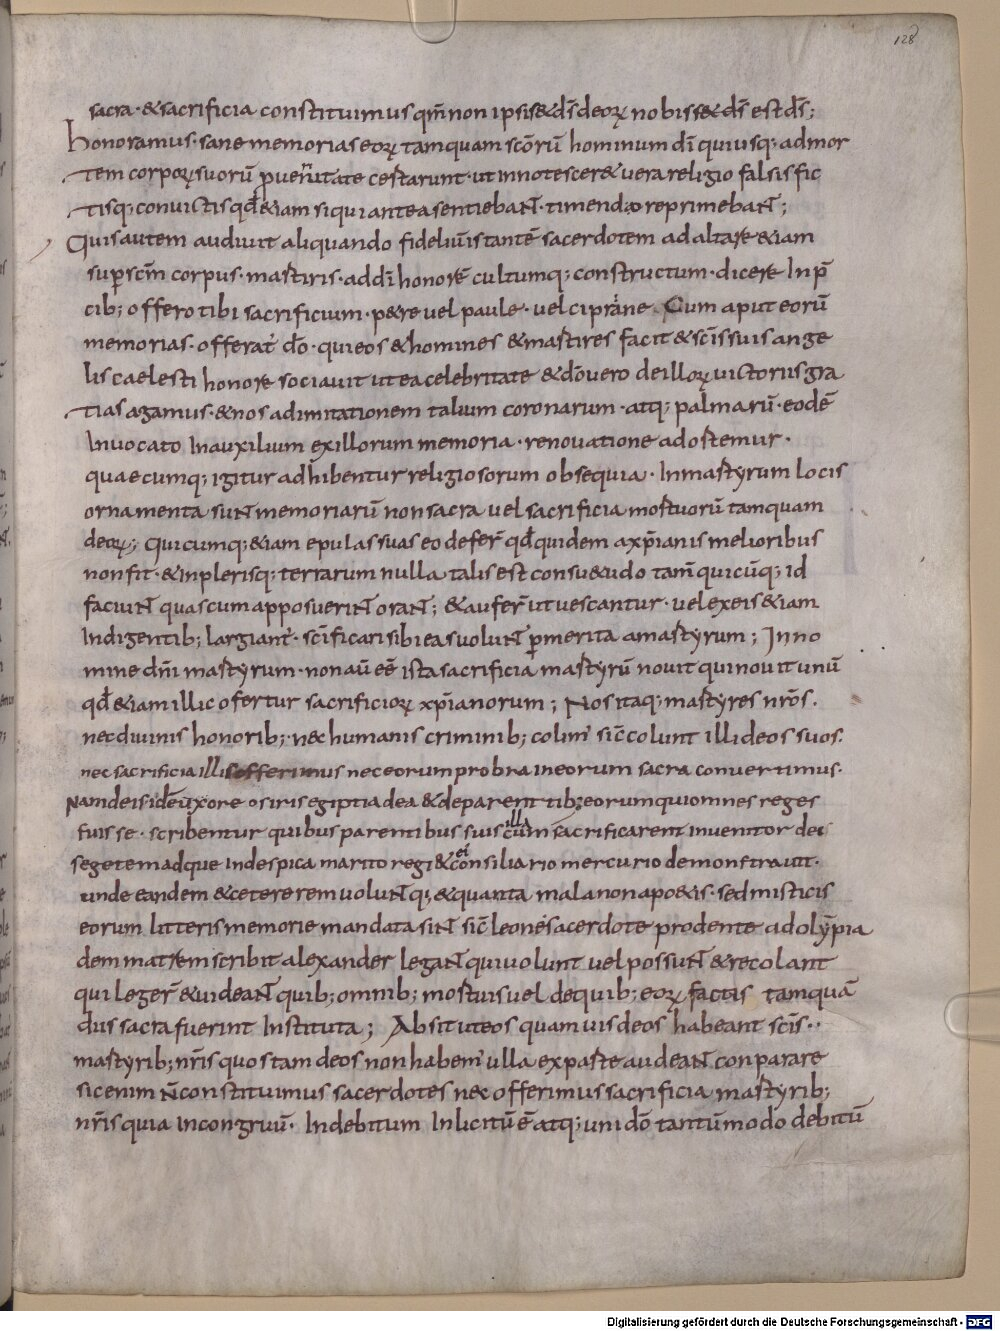 128
sacra · & sacrificia constituimus qm̄ non ipsis & ds̄ deoꝝ nobis & ds̄ est ds̄;
honoramus · sane memorias eoꝝ tamquam scōrū hominum dī qui usq; ad mor
tem corpoꝝ suorū pro ueritate certarunt · ut innotescer& uera religio falsis fic
tisq; conuictis qđ &iam siqui antea sentiebant · timendo reprimebant;
Quis autem audiuit aliquando fideliū stantē sacerdotem ad altare &iam
sup scm̄ corpus · martiris · ad dī honorē cultumq; constructum · dicere In p̄
cib; offero tibi sacrificium · p&re uel paule · uel cipriane Cum aput eorū
memorias · offerat̓ dō · qui eos & homines & martires facit & scīs suis ange
lis caelesti honore sociauit ut ea celebritate & dō uero de illoꝝ uictoriis gra
tias agamus · & nos ad imitationem talium coronarum · atq; palmarū · eodē
Inuocato In auxilium ex illorum memoria · renouatione adortemur ·
quaecumq; igitur adhibentur religiosorum obsequia · In martyrum locis
ornamenta sunt memoriarū non sacra uel sacrificia mortuorū tamquam
deoꝝ; Quicumq; &iam epulas suas eo defer̄ qđ quidem a xp̄ianis melioribus
non fit · & in plerisq; terrarum nulla talis est consu&udo tam̄ quicūq; id
faciunt quas cum apposuerint orant; & aufer̄ ut uescantur · uel ex eis &iam
Indigentib; largiant̓ · scīficari sibi eas uolunt p merita martyrum; In no
mine dnī martyrum · non aū eē ista sacrificia martyrū nouit qui nouit unū
qđ &iam illic ofertur sacrificioꝝ xp̄ianorum; Nos itaq; martyres nrōs ·
nec diuinis honorib; · nec humanis criminib; colim̓ sic̄ colunt illi deos suos ·
nec sacrificia illis offerimus nec eorum probra in eorum sacra conuertimus ·
Nam de iside uxore osiris egiptia dea & de parentib; eorum qui omnes reges
fuisse · scribentur quibus parentibus suis illa cum sacrificarent inuenitor dei
segetem adque inde spica marito regi & ei consiliario mercurio demonstrauit ·
unde eandem & cetererem uolunt q; & quanta mala non apo&is · sed misticis
eorum litteris memorie mandata sint sic̄ leone sacerdote prodente ad olȳpia
dem matrem scribit alexander legant qui uolunt uel possunt & recolant
qui leger̄ & uideant quib; omnib; mortuis uel de quib; eoꝝ factis tamquā
dus sacra fuerint Instituta; Absit ut eos quamuis deos habeant scīs ··
martyrib; nrīs quos tam deos non habem̓ ulla ex parte audeant conparare
sic enim n̄ constituimus sacerdotes nec offerimus sacrificia martyrib;
nrīs quia incongruū · Indebitum Inlicitū ē atq; uni dō tantūmodo debitū
Digitalisierung gefördert durch die Deutsche Forschungsgemeinschaft - DFG